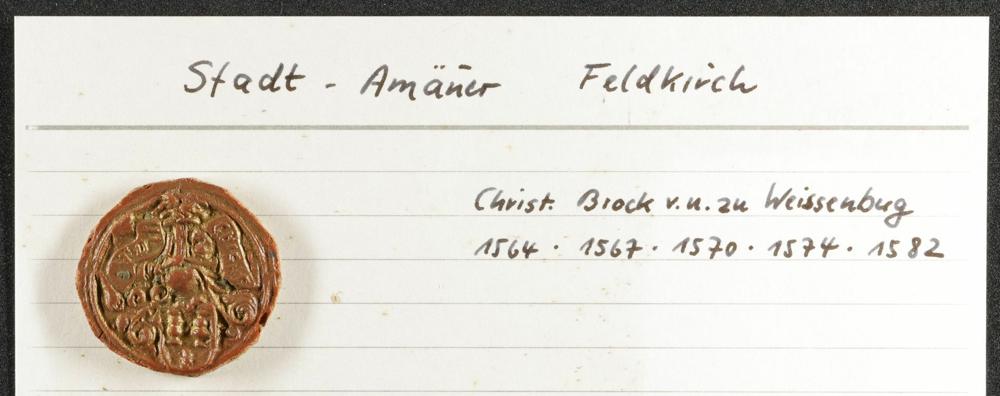 Stadt - Amäner Feldkirch
Christ. Brock v. u. zu Weissenbug
1564 · 1567 · 1570 · 1574 · 1582